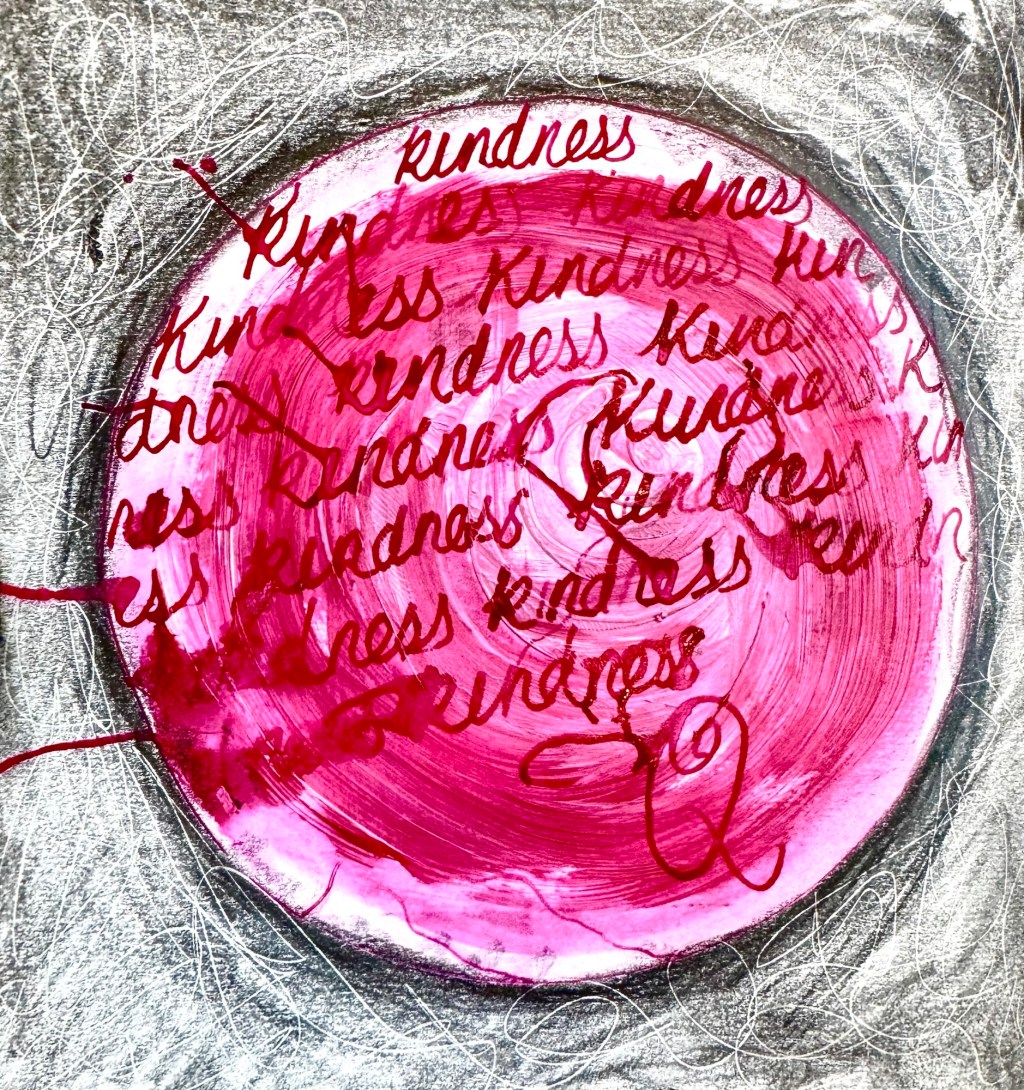 kindness
kindness kindness
kindness kindness kin
dness kindness kind
ness kindness kindne
ess kindness kindness kin
dness kindness kindn
kindness